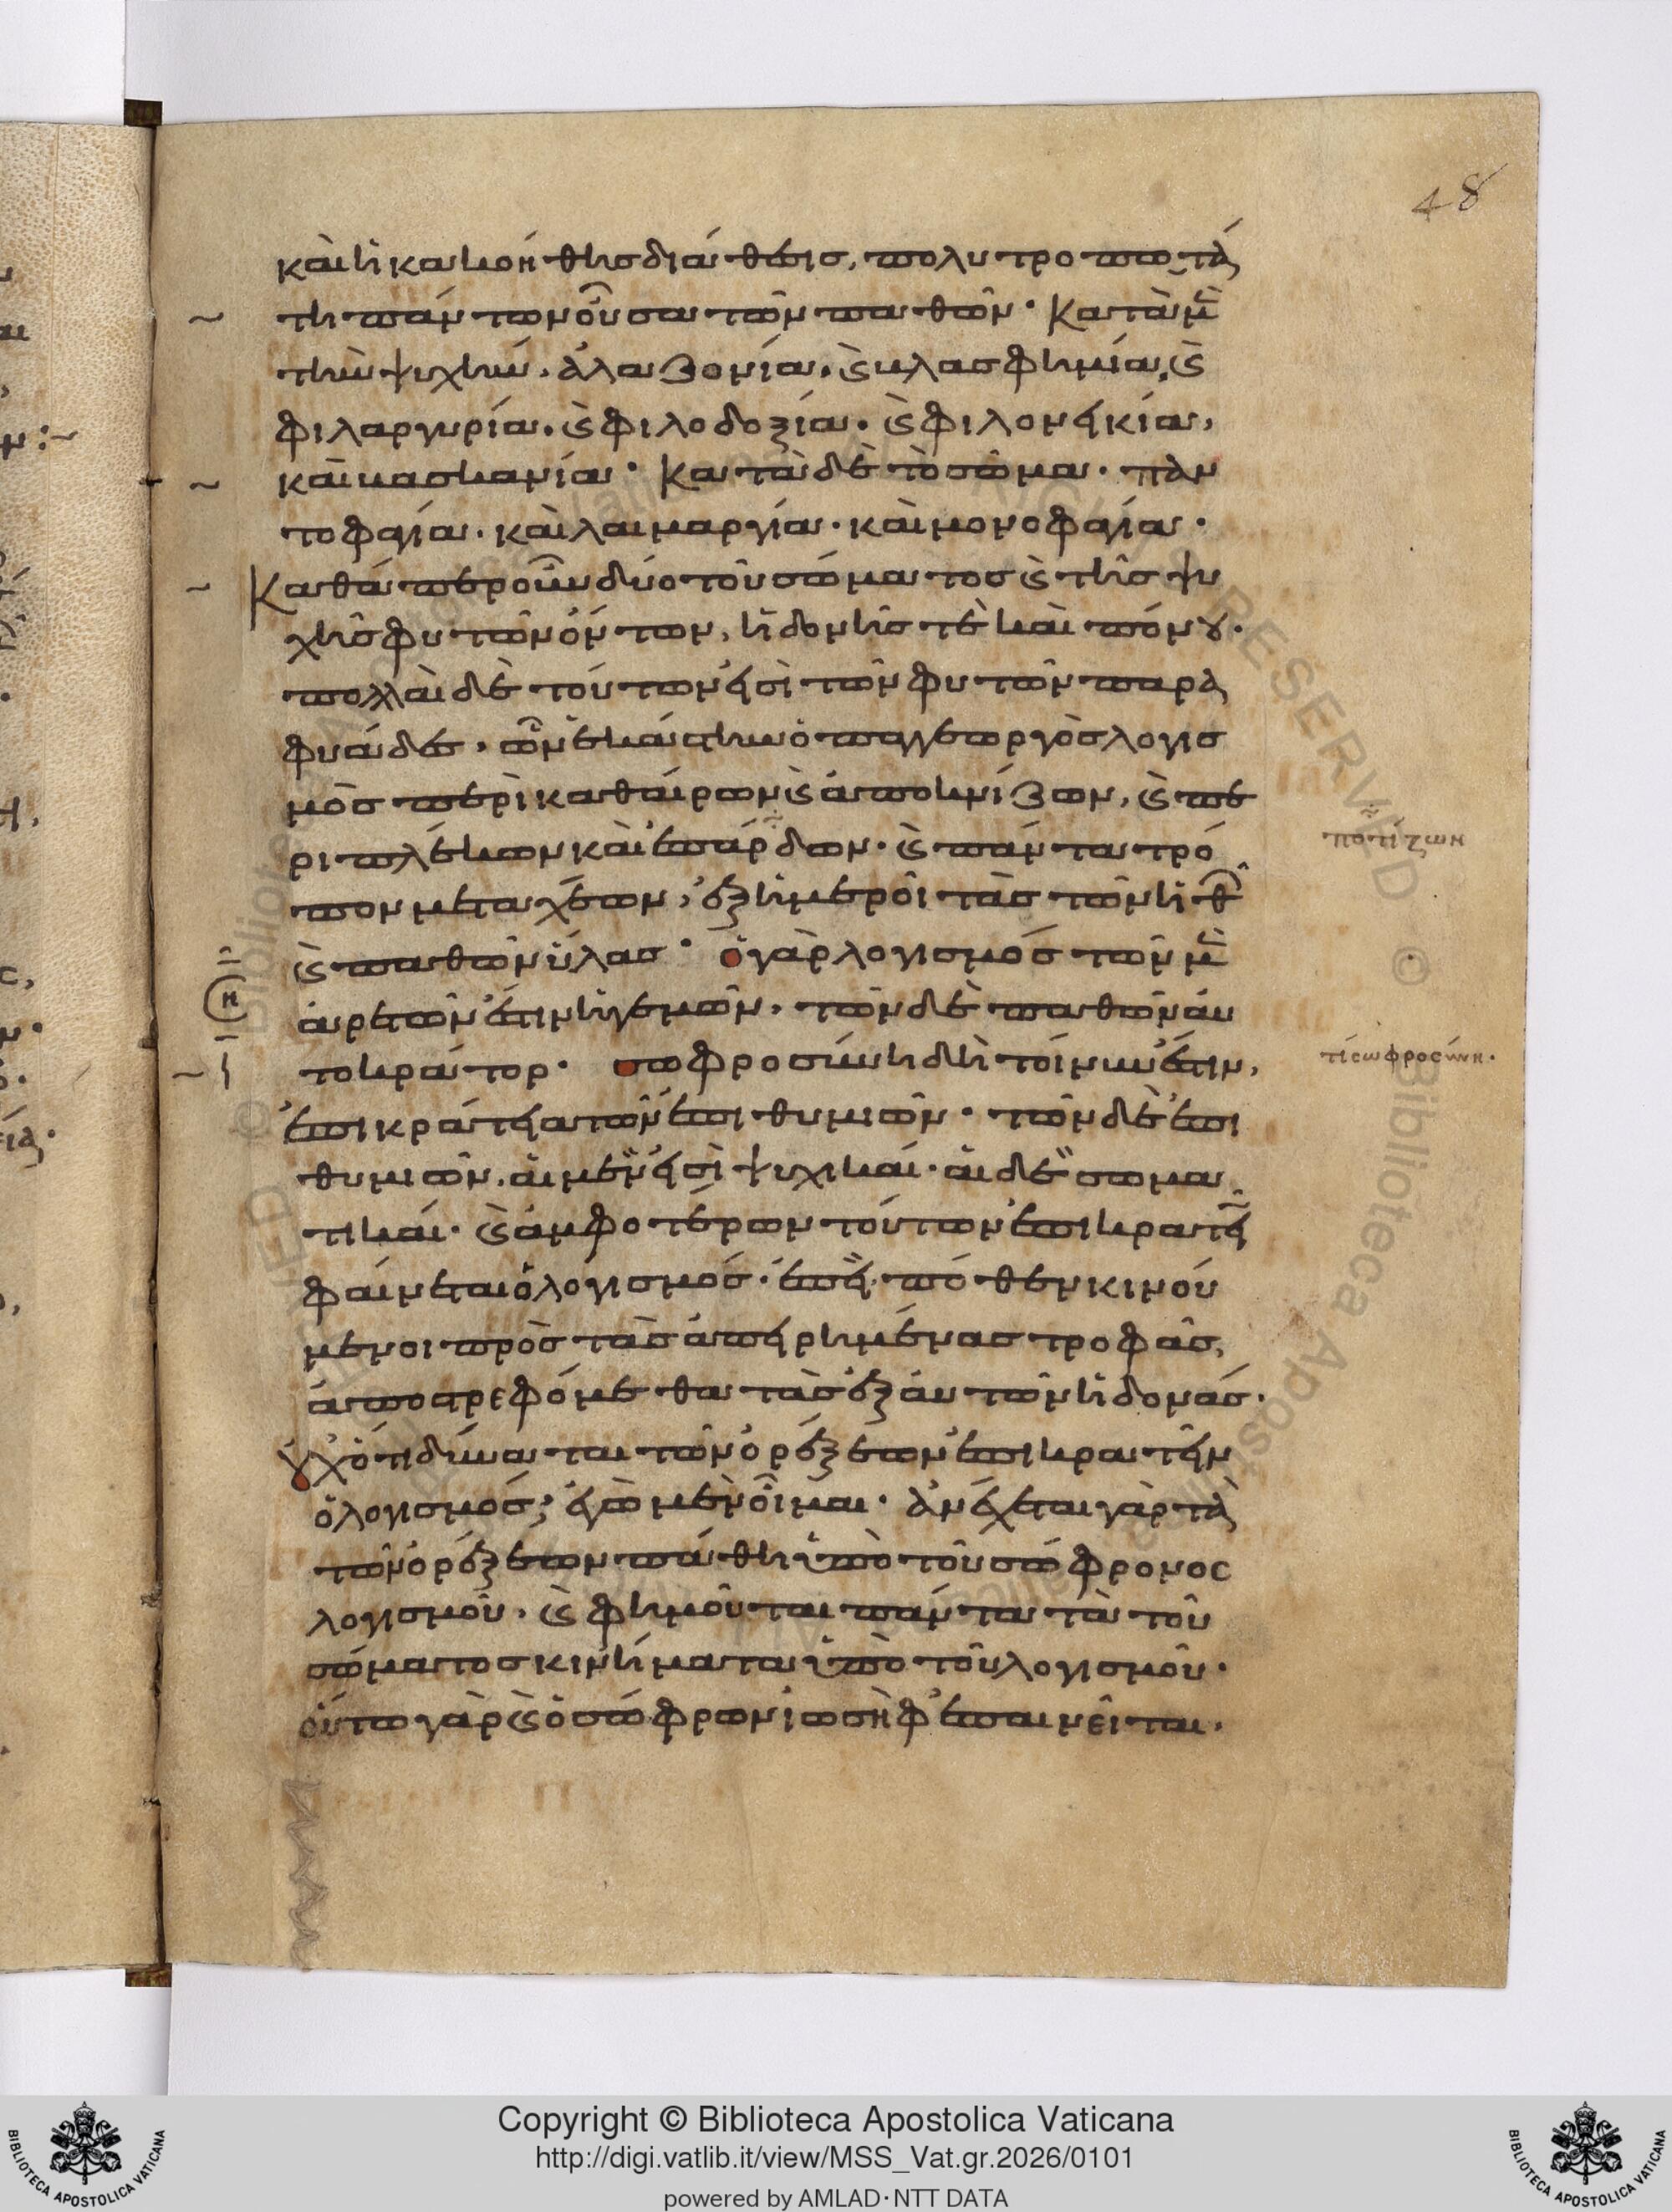 48
καὶ ἡ κακοήθης διάθεσις, πολυτροπωτά
τη πάντων οὖσα τῶν παθῶν· Κατὰ μὲν
τὴν ψυχὴν. ἀλαζονία. καὶ βλασφημία, καὶ
φιλαργυρία. καὶ φιλοδοξία. καὶ φιλονεικία,
καὶ βασκανία· Κατὰ δὲ τὸ σῶμα. παν
τοφαγία. καὶ λαιμαργία. καὶ μονοφαγία.
Καθάπερ οὖν δύο τοῦ σώματος καὶ τῆς ψυ
χῆς φυτῶν ὄντων, ἡδονῆς τὲ καὶ πόνου.
πολλαὶ δὲ τούτων εἰσὶ τῶν φυτῶν παρα
φυάδες. ὧν ἑκάστην ὁ παγγέωργὸς λογισ
μὸς περικαθαίρων καὶ ἀποκνίζων, καὶ πε
ριπλέκων καὶ ἐπάρδων. καὶ πάντα τρό
πον μεταχέων, ἐξημεροῖ τὰς τῶν ἠθῶν
καὶ παθῶν ὕλας· ὁ γὰρ λογισμός τῶν μὲν
ἀρετῶν ἐστιν ἡγεμών, τῶν δὲ παθῶν αὐ
τοκράτορ· σωφροσύνη δὴ τοίνυν ἐστιν,
ἐπικράτεια τῶν ἐπιθυμιῶν. τῶν δὲ ἐπι
θυμιῶν. αἱ μὲν εἰσὶ ψυχικαί. αἱ δὲ σωμα
τικαί. καὶ ἀμφοτέρων τούτων ἐπικρατεῖν
φαίνεται ὁ λογισμός. ἐπεὶ πόθεν κινού
μενοι πρὸς τὰς ἀπειρημένας τροφὰς,
ἀποστρεφόμεθα τὰς ἐξ αὐτῶν ἡδονάς.
οὐχ ὅτι δύναται τῶν ὀρέξεων ἐπικρατεῖν
ὁ λογισμός; ἐγὼ μὲν οἶμαι. ἀνέχεται γὰρ τὰ
τῶν ὀρέξεων πάθη ὑπὸ τοῦ σώφρονος
λογισμοῦ. καὶ φημοῦται πάντα τὰ τοῦ
σώματος κινήματα ὑπὸ τοῦ λογισμοῦ.
οὕτω γὰρ καὶ ὁ σώφρων ἰωσὴφ ἐπαινεῖται,
ποτίζων
τί σωφροσύνη.
Copyright © Biblioteca Apostolica Vaticana
http://digi.vatlib.it/view/MSS_Vat.gr.2026/0101
powered by AMLAD·NTT DATA
BIBLIOTECA APOSTOLICA VATICANA
BIBLIOTECA APOSTOLICA VATICANA